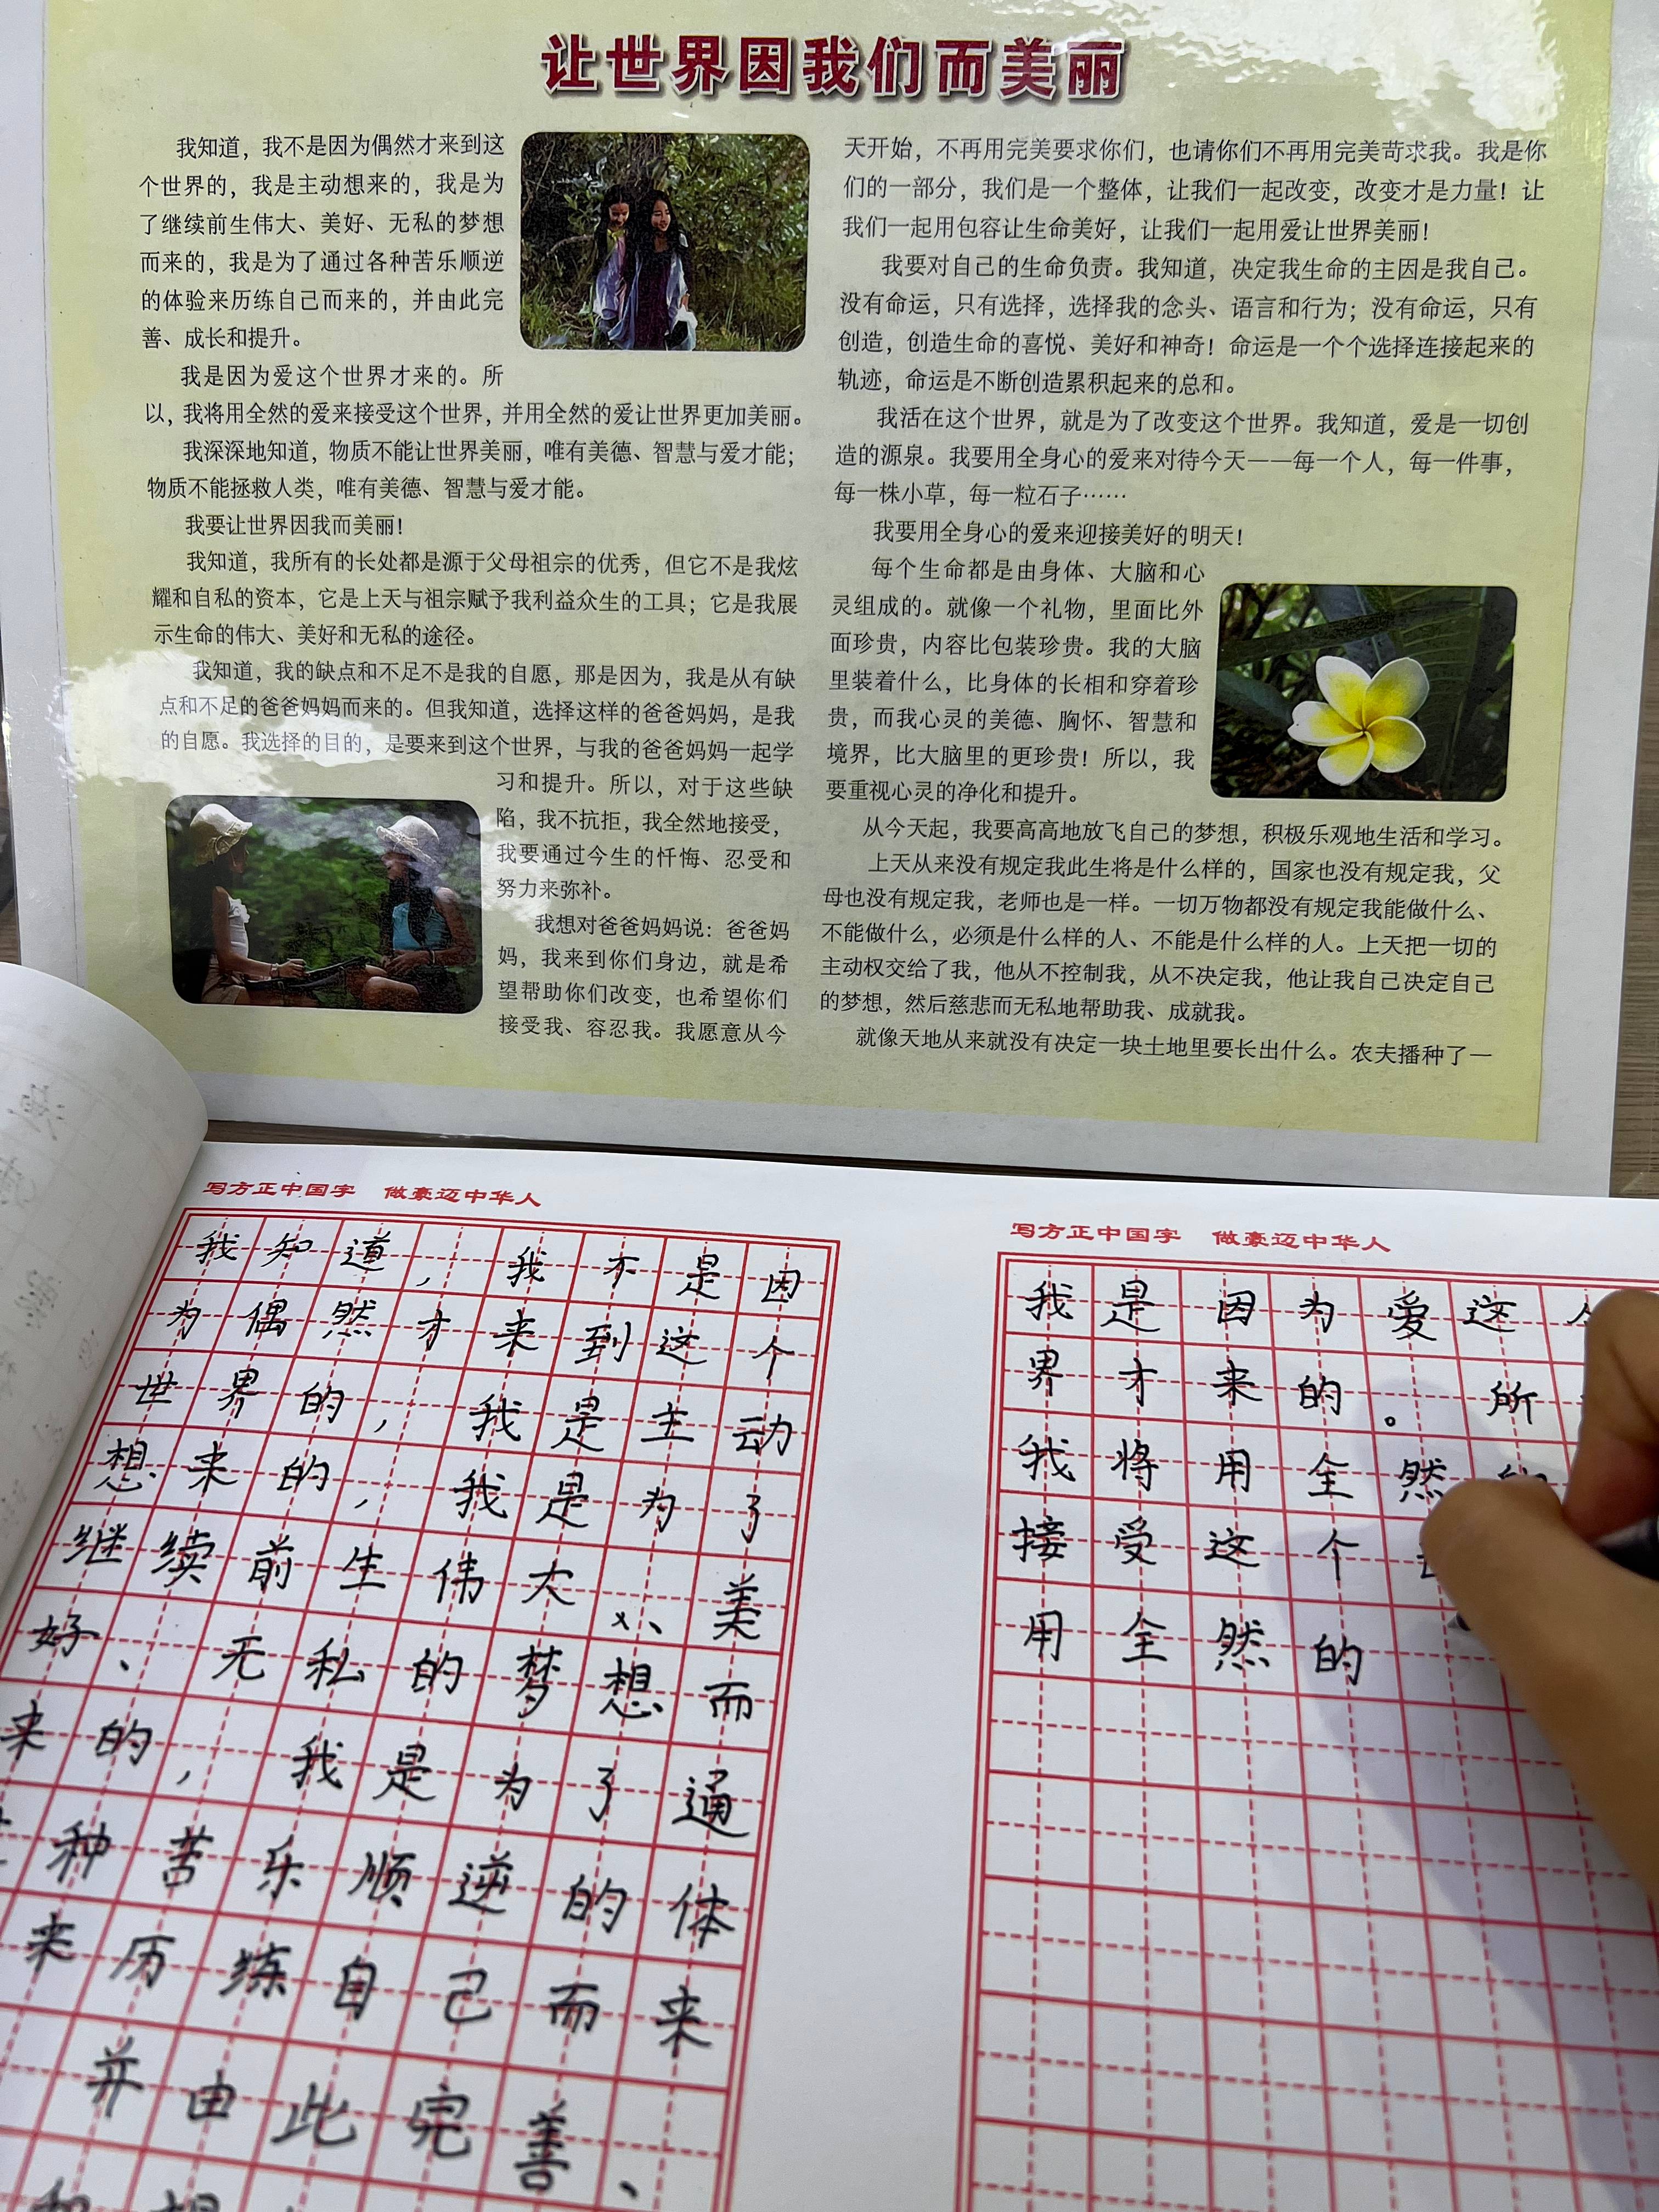 让世界因我们而美丽
我知道，我不是因为偶然才来到这
个世界的，我是主动想来的，我是为
了继续前生伟大、美好、无私的梦想
而来的，我是为了通过各种苦乐顺逆
的体验来历练自己而来的，并由此完
善、成长和提升。
我是因为爱这个世界才来的。所
以，我将用全然的爱来接受这个世界，并用全然的爱让世界更加美丽。
我深深地知道，物质不能让世界美丽，唯有美德、智慧与爱才能；
物质不能拯救人类，唯有美德、智慧与爱才能。
我要让世界因我而美丽！
我知道，我所有的长处都是源于父母祖宗的优秀，但它不是我炫
耀和自私的资本，它是上天与祖宗赋予我利益众生的工具；它是我展
示生命的伟大、美好和无私的途径。
我知道，我的缺点和不足不是我的自愿，那是因为，我是从有缺
点和不足的爸爸妈妈而来的。但我知道，选择这样的爸爸妈妈，是我
的自愿。我选择的目的，是要来到这个世界，与我的爸爸妈妈一起学
习和提升。所以，对于这些缺
陷，我不抗拒，我全然地接受，
我要通过今生的忏悔、忍受和
努力来弥补。
我想对爸爸妈妈说：爸爸妈
妈，我来到你们身边，就是希
望帮助你们改变，也希望你们
接受我、容忍我。我愿意从今
天开始，不再用完美要求你们，也请你们不再用完美苛求我。我是你
们的一部分，我们是一个整体，让我们一起改变，改变才是力量！让
我们一起用包容让生命美好，让我们一起用爱让世界美丽！
我要对自己的生命负责。我知道，决定我生命的主因是我自己。
没有命运，只有选择，选择我的念头、语言和行为；没有命运，只有
创造，创造生命的喜悦、美好和神奇！命运是一个个选择连接起来的
轨迹，命运是不断创造累积起来的总和。
我活在这个世界，就是为了改变这个世界。我知道，爱是一切创
造的源泉。我要用全身心的爱来对待今天——每一个人，每一件事，
每一株小草，每一粒石子……
我要用全身心的爱来迎接美好的明天！
每个生命都是由身体、大脑和心
灵组成的。就像一个礼物，里面比外
面珍贵，内容比包装珍贵。我的大脑
里装着什么，比身体的长相和穿着珍
贵，而我心灵的美德、胸怀、智慧和
境界，比大脑里的更珍贵！所以，我
要重视心灵的净化和提升。
从今天起，我要高高地放飞自己的梦想，积极乐观地生活和学习。
上天从来没有规定我此生将是什么样的，国家也没有规定我，父
母也没有规定我，老师也是一样。一切万物都没有规定我能做什么、
不能做什么，必须是什么样的人、不能是什么样的人。上天把一切的
主动权交给了我，他从不控制我，从不决定我，他让我自己决定自己
的梦想，然后慈悲而无私地帮助我、成就我。
就像天地从来就没有决定一块土地里要长出什么。农夫播种了一
写方正中国字 做豪迈中华人
我知道，我不是因
为偶然才来到这个
世界的，我是主动
想来的，我是为了
继续前生伟大、美
好、无私的梦想而
来的，我是为了通
种苦乐顺逆的体
来历练自己而来
并由此完善、
写方正中国字 做豪迈中华人
我是因为爱这
界才来的。所
我将用全然
接受这个
用全然的